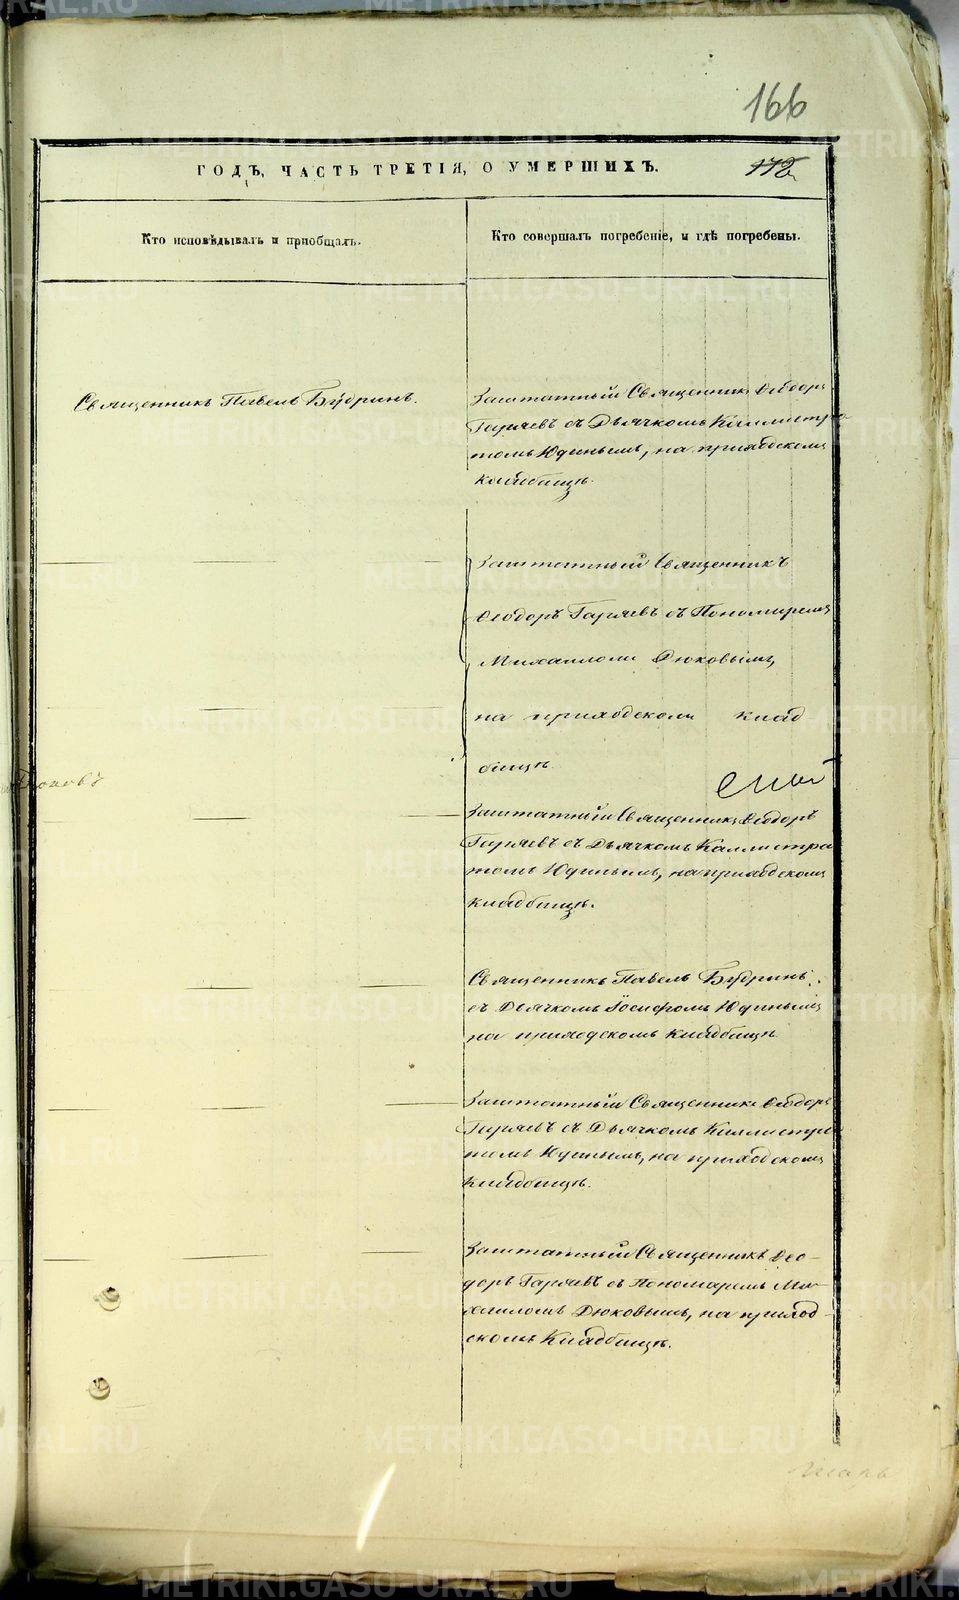 166
ГОДЪ, ЧАСТЬ ТРЕТІЯ, О УМЕРШИХЪ.
172
Кто исповѣдывалъ и пріобщалъ.
Кто совершалъ погребеніе, и гдѣ погребены.
Священникъ Павелъ Будринъ.
Заштатный Священникъ Ѳеодоръ
Гаряевъ съ Дьячкомъ Каллистра
томъ Юдинымъ, на приходскомъ
кладбищѣ.
Заштатный Священникъ
Ѳеодоръ Гаряевъ съ Пономаремъ
Михаиломъ Дюковымъ,
на приходскомъ клад
бищѣ.
Заштатный Священникъ Ѳеодоръ
Гаряевъ съ Дьячкомъ Каллистра
томъ Юдинымъ, на приходскомъ
кладбищѣ.
Священникъ Павелъ Будринъ
съ Дьячкомъ Іосифомъ Юдинымъ
на приходскомъ кладбищѣ
Заштатный Священникъ Ѳеодоръ
Гаряевъ съ Дьячкомъ Каллистра
томъ Юдинымъ, на приходскомъ
кладбищѣ.
Заштатный Священникъ Ѳео-
доръ Гаряевъ съ Пономаремъ Ми-
хаиломъ Дюковымъ, на приход-
скомъ Кладбищѣ.
METRIKI.GASO-URAL.RU